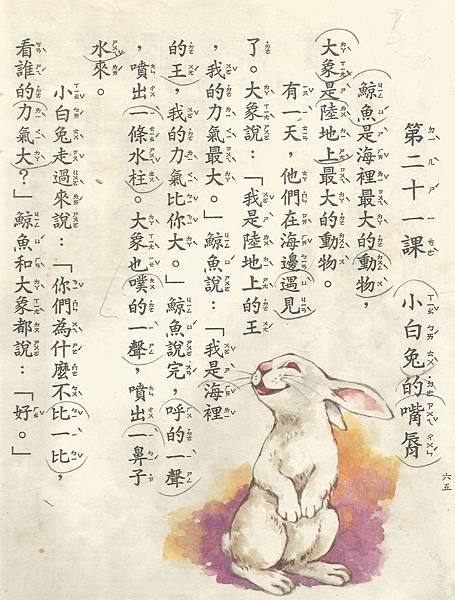 第二十一課　小白兔的嘴脣
鯨魚是海裡最大的動物，
大象是陸地上最大的動物。
有一天，他們在海邊遇見
了。大象說：「我是陸地上的王
，我的力氣最大。」鯨魚說：「我是海裡
的王，我的力氣比你大。」鯨魚說完，呼的一聲
，噴出一條水柱。大象也噗的一聲，噴出一鼻子
水來。
小白兔走過來說：「你們為什麼不比一比，
看誰的力氣大？」鯨魚和大象都說：「好。」
六五